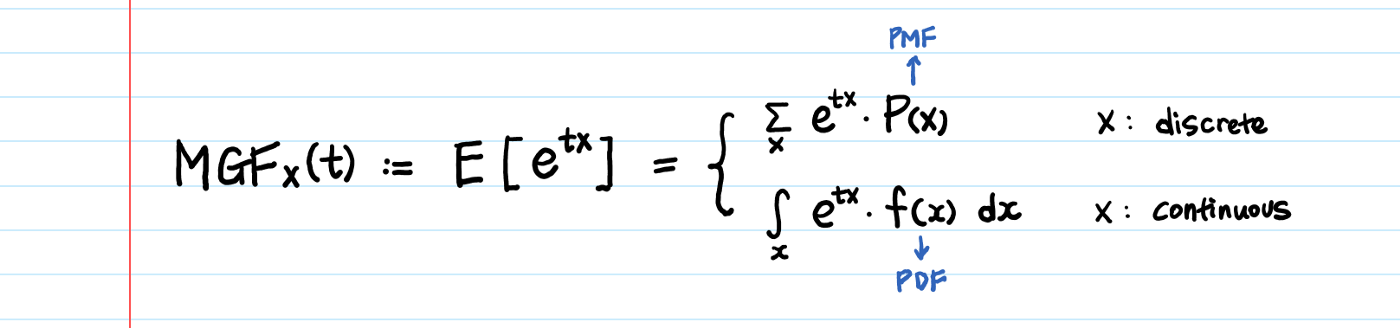 PMF
↑
MGFₓ(t) := E[eᵗˣ] = { Σₓ eᵗˣ · P(x)    x : discrete
∫ₓ eᵗˣ · f(x) dx    x : continuous
↓
PDF